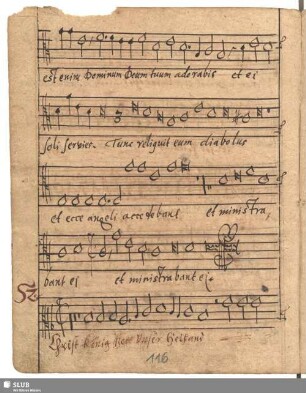 est enim Dominum Deum tuum adorabis et ei
soli servies. Tunc reliquit eum diabolus
et ecce angeli accedebant et ministra,
bant ei et ministrabant ei.
52
Christ König Gott unser Heiland
116
SLUB